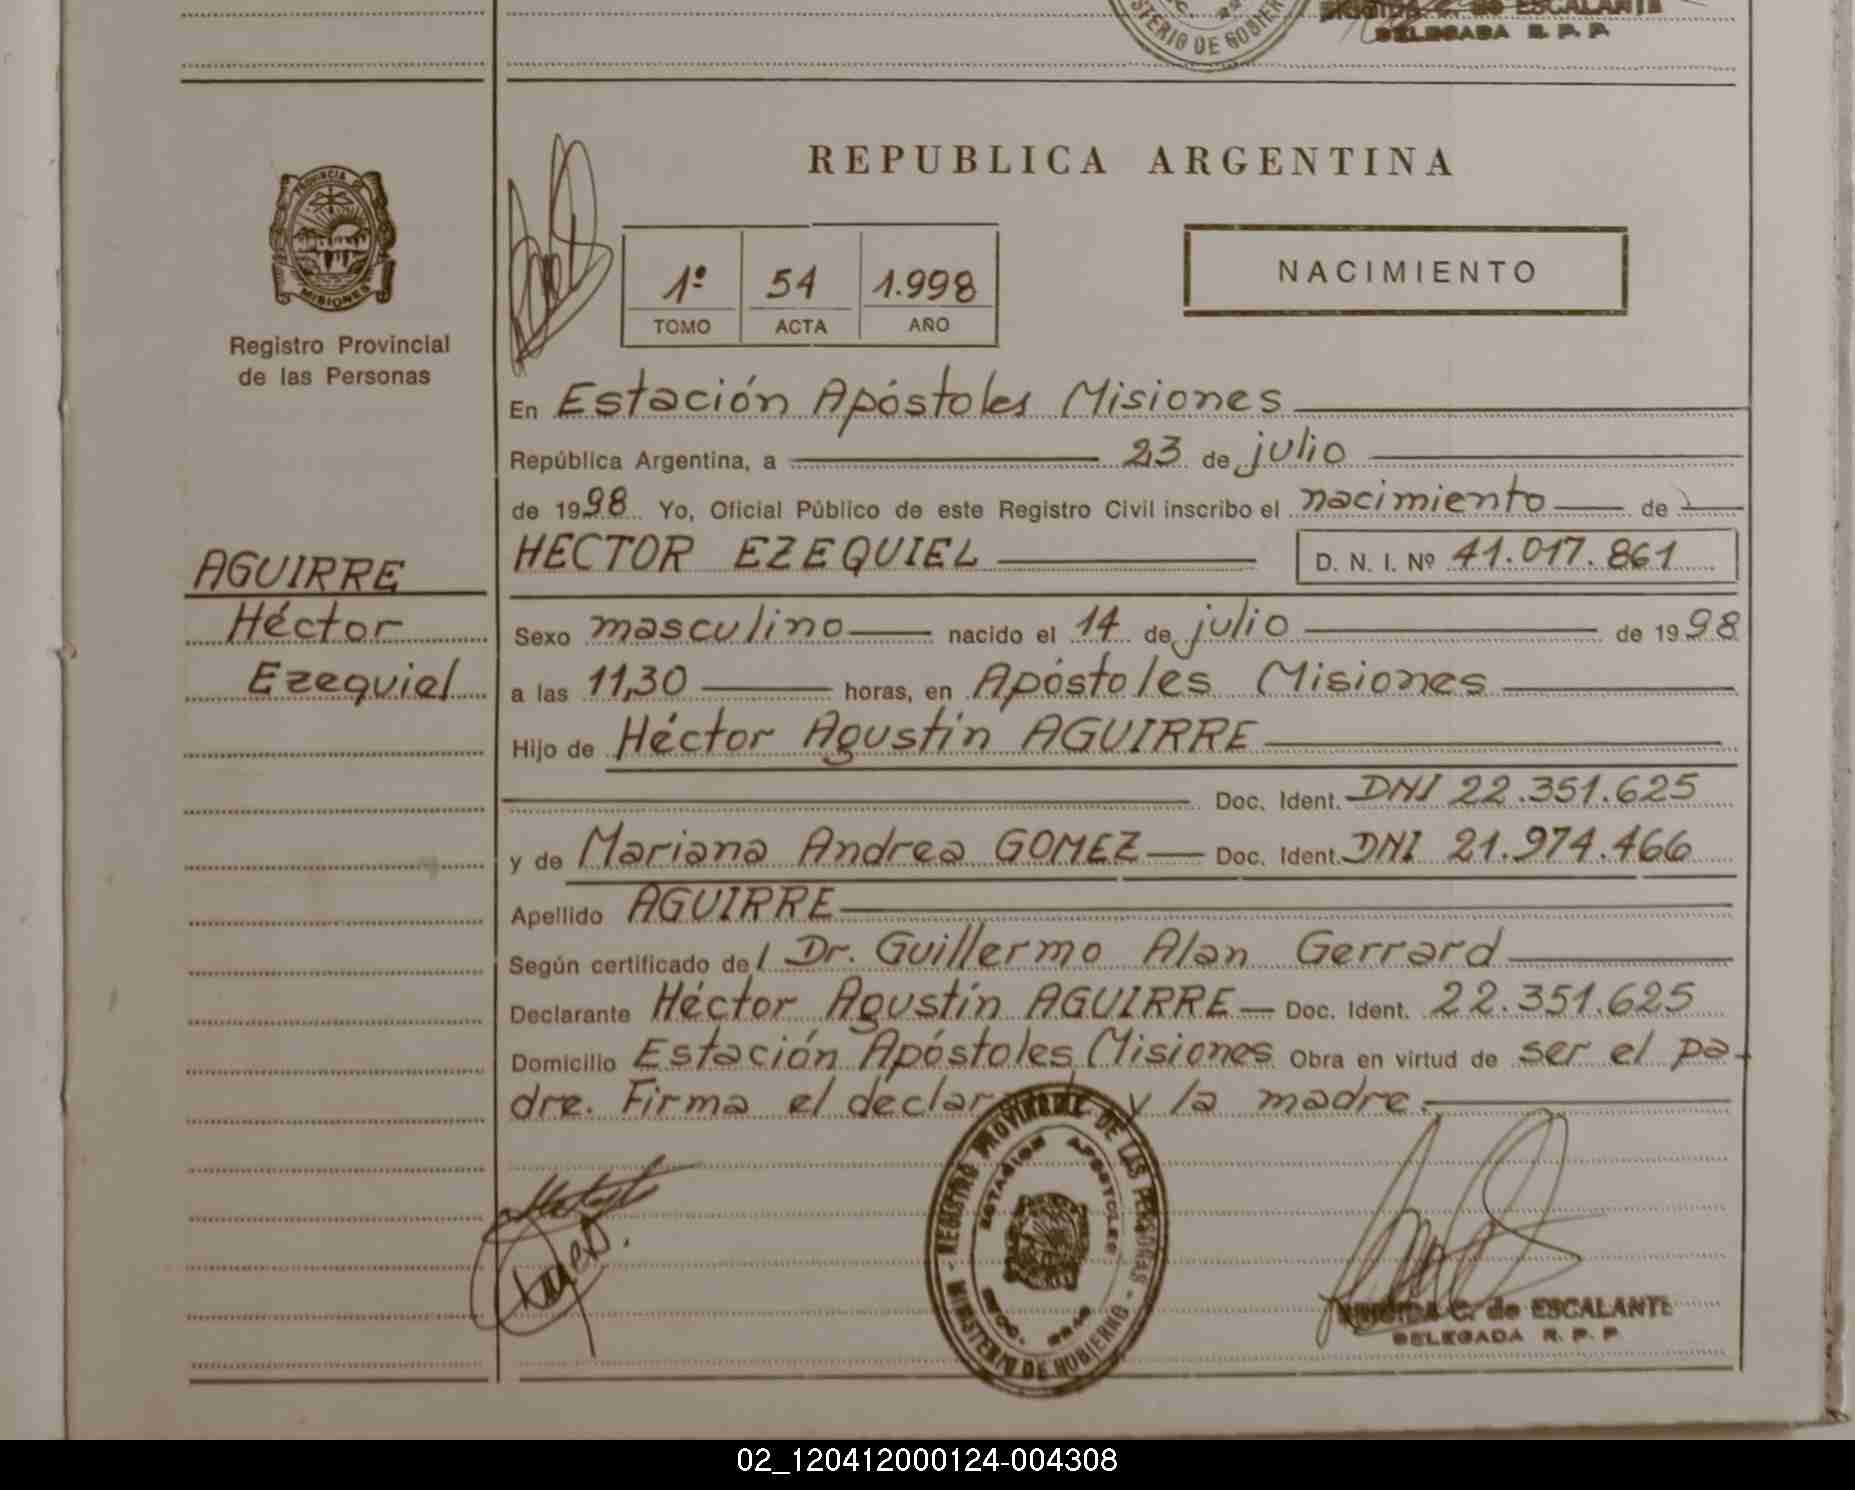 ESCALANTE
DELEGADA R. P. P.
MINISTERIO DE GOBIERNO
REPUBLICA ARGENTINA
PROVINCIA DE
MISIONES
Registro Provincial
de las Personas
1º 54 1.998
TOMO ACTA AÑO
NACIMIENTO
En Estación Apóstoles Misiones
República Argentina, a 23 de julio
de 1998 Yo, Oficial Público de este Registro Civil inscribo el nacimiento de
HECTOR EZEQUIEL D. N. I. Nº 41.017.861
AGUIRRE
Héctor
Ezequiel
Sexo masculino nacido el 14 de julio de 1998
a las 11,30 horas, en Apóstoles Misiones
Hijo de Héctor Agustín AGUIRRE
Doc. Ident. DNI 22.351.625
y de Mariana Andrea GOMEZ Doc. Ident. DNI 21.974.466
Apellido AGUIRRE
Según certificado de/ Dr. Guillermo Alan Gerrard
Declarante Héctor Agustín AGUIRRE Doc. Ident. 22.351.625
Domicilio Estación Apóstoles Misiones Obra en virtud de ser el pa-
dre. Firma el declar y la madre.
REGISTRO PROVINCIAL DE LAS PERSONAS
ESTACION APOSTOLES
MINISTERIO DE GOBIERNO
C. de ESCALANTE
DELEGADA R. P. P
02_120412000124-004308